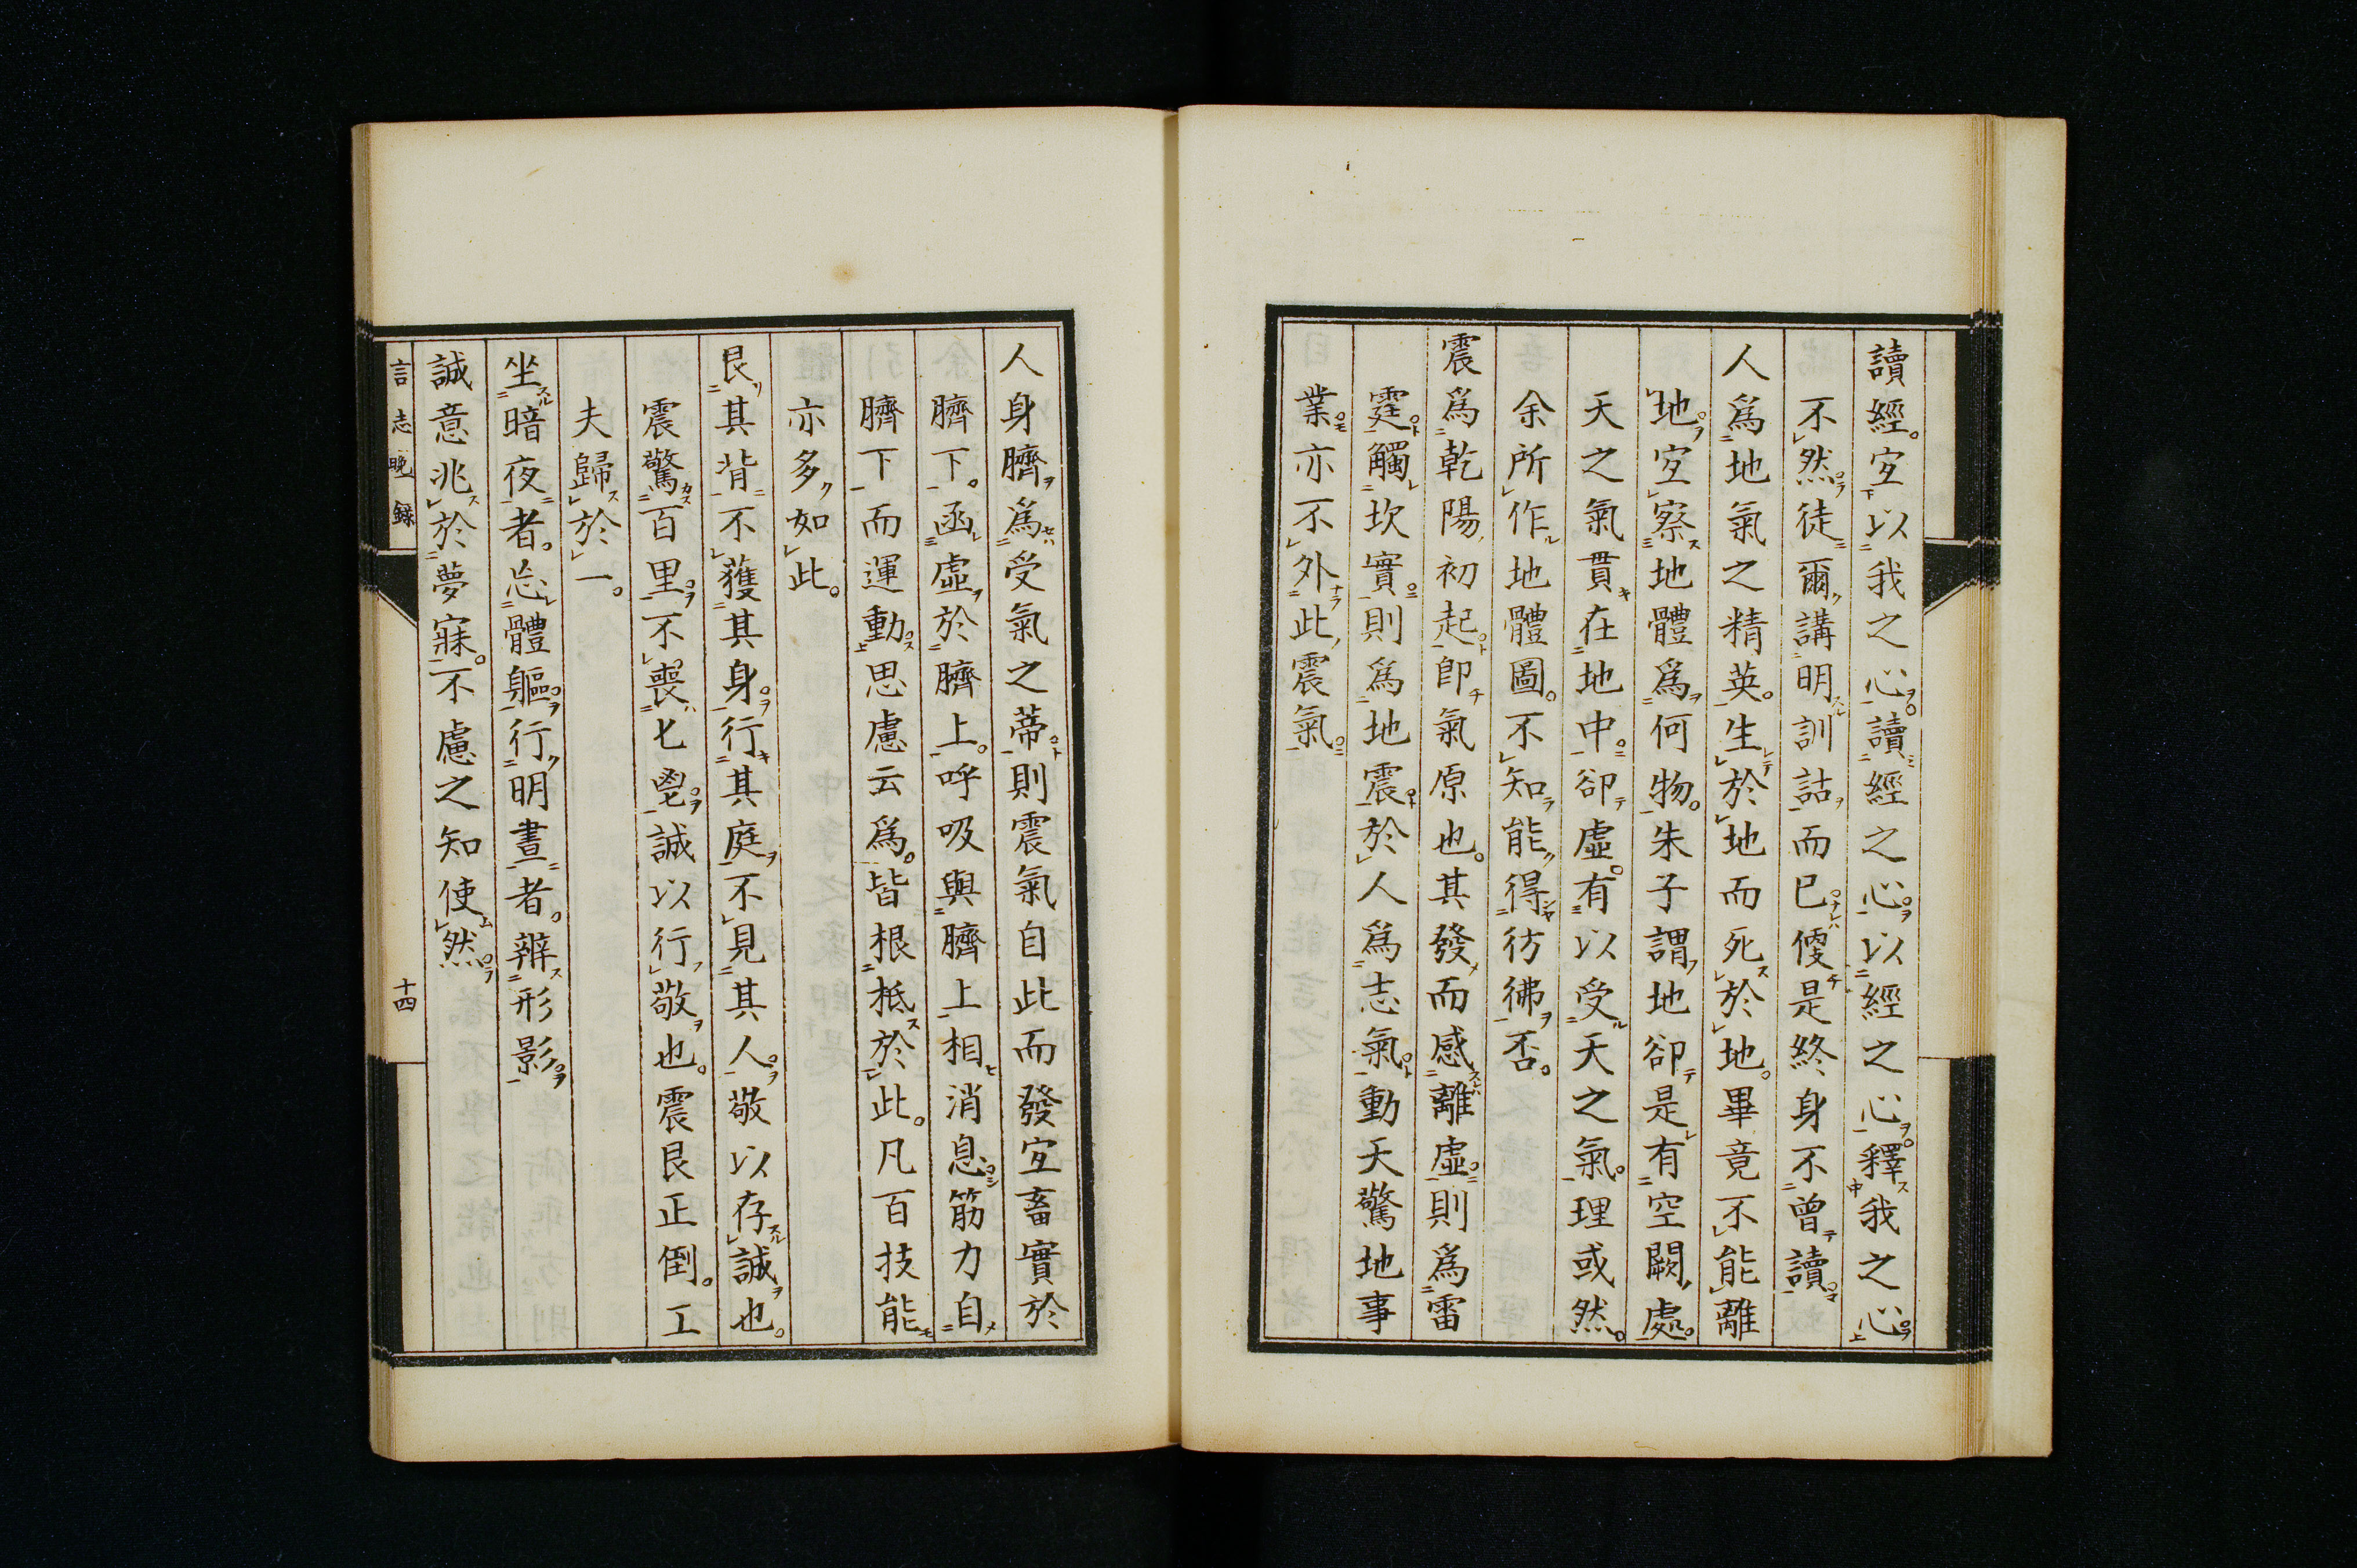 讀經。宐以我之心。讀經之心。以經之心。釋我之心
不然徒爾講明訓詁而已。便是終身不曾讀
人爲地氣之精英。生於地而死於地。畢竟不能離
地。宐察地體爲何物。朱子謂地卻是有空闕處。
天之氣貫在地中。卻虛。有以受天之氣。理或然。
余所作地體圖。不知能得彷彿否。
震爲乾陽初起。卽氣原也。其發而感離虛。則爲雷
霆。觸坎實。則爲地震。於人爲志氣。動天驚地事
業。亦不外此震氣。
人身臍爲受氣之蒂。則震氣自此而發。宐畜實於
臍下。函虛於臍上。呼吸與臍上相消息。筋力自
臍下而運動。思慮云爲。皆根柢於此。凡百技能
亦多如此。
艮其背不獲其身。行其庭不見其人。敬以存誠也。
震驚百里。不喪匕鬯。誠以行敬也。震艮正倒。工
夫歸於一。
坐暗夜者。忘體軀。行明晝者。辨形影。
誠意兆於夢寐。不慮之知使然
言志晚錄
十四